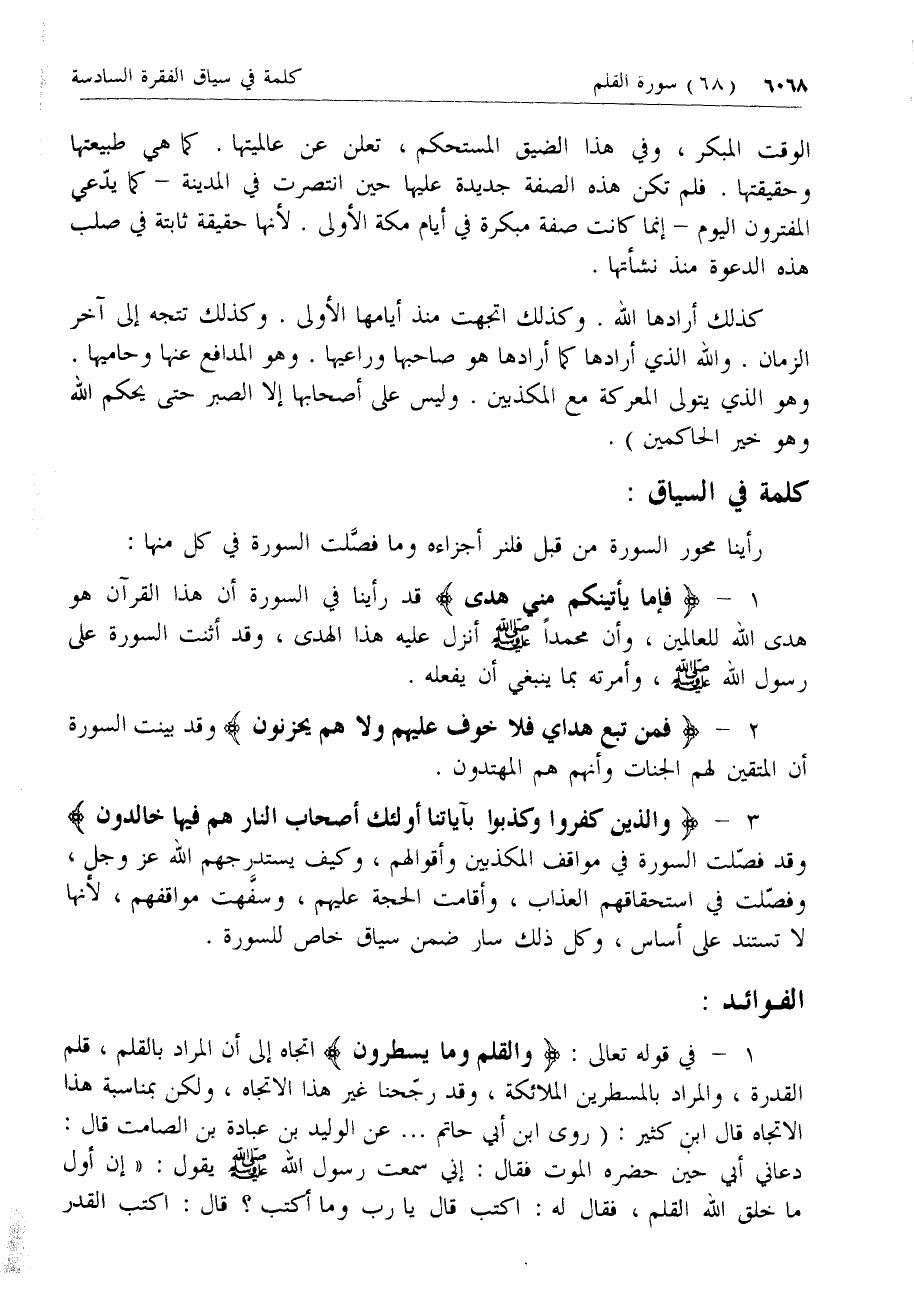 ٦٠٦٨ (٦٨) سورة القلم كلمة في سياق الفقرة السادسة
الوقت المبكر ، وفي هذا الضيق المستحكم ، تعلن عن عالميتها . كما هي طبيعتها
وحقيقتها . فلم تكن هذه الصفة جديدة عليها حين انتصرت في المدينة – كما يدّعي
المفترون اليوم – إنما كانت صفة مبكرة في أيام مكة الأولى . لأنها حقيقة ثابتة في صلب
هذه الدعوة منذ نشأتها .
كذلك أرادها الله . وكذلك اتجهت منذ أيامها الأولى . وكذلك تتجه إلى آخر
الزمان . والله الذي أرادها كما أرادها هو صاحبها وراعيها . وهو المدافع عنها وحاميها .
وهو الذي يتولى المعركة مع المكذبين . وليس على أصحابها إلا الصبر حتى يحكم الله
وهو خير الحاكمين ) .
كلمة في السياق :
رأينا محور السورة من قبل فلنر أجزاءه وما فصَّلت السورة في كل منها :
١ – ﴿ فإما يأتينكم مني هدى ﴾ قد رأينا في السورة أن هذا القرآن هو
هدى الله للعالمين ، وأن محمداً ﷺ أنزل عليه هذا الهدى ، وقد أثنت السورة على
رسول الله ﷺ ، وأمرته بما ينبغي أن يفعله .
٢ – ﴿ فمن تبع هداي فلا خوف عليهم ولا هم يحزنون ﴾ وقد بينت السورة
أن المتقين لهم الجنات وأنهم هم المهتدون .
٣ – ﴿ والذين كفروا وكذبوا بآياتنا أولئك أصحاب النار هم فيها خالدون ﴾
وقد فصّلت السورة في مواقف المكذبين وأقوالهم ، وكيف يستدرجهم الله عز وجل ،
وفصّلت في استحقاقهم العذاب ، وأقامت الحجة عليهم ، وسفَّهت مواقفهم ، لأنها
لا تستند على أساس ، وكل ذلك سار ضمن سياق خاص للسورة .
الفـوائـد :
١ – في قوله تعالى : ﴿ والقلم وما يسطرون ﴾ اتجاه إلى أن المراد بالقلم ، قلم
القدرة ، والمراد بالمسطرين الملائكة ، وقد رجّحنا غير هذا الاتجاه ، ولكن بمناسبة هذا
الاتجاه قال ابن كثير : ( روى ابن أبي حاتم ... عن الوليد بن عبادة بن الصامت قال :
دعاني أبي حين حضره الموت فقال : إني سمعت رسول الله ﷺ يقول : « إن أول
ما خلق الله القلم ، فقال له : اكتب قال يا رب وما أكتب ؟ قال : اكتب القدر